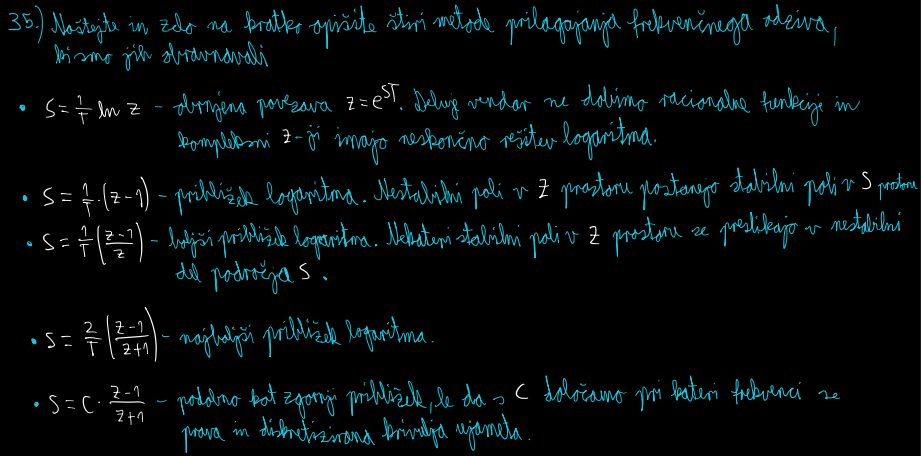 35.) Naštejte in zelo na kratko opišite štiri metode prilagajanja frekvenčnega odziva,
ki smo jih obravnavali
• s = 1/T ln z - obrnjena povezava z = e^{sT}. Deluje vendar ne dobimo racionalne funkcije in
kompleksni z-ji imajo neskončno rešitev logaritma.
• s = 1/T · (z-1) - približek logaritma. Nestabilni poli v z prostoru postanejo stabilni poli v s prostoru
• s = 1/T ((z-1)/z) - boljši približek logaritma. Nekateri stabilni poli v z prostoru se preslikajo v nestabilni
del področja s.
• s = 2/T ((z-1)/(z+1)) - najboljši približek logaritma.
• s = C · (z-1)/(z+1) - podobno kot zgornji približek, le da s C določamo pri kateri frekvenci se
prava in diskretizirana krivulja ujameta.